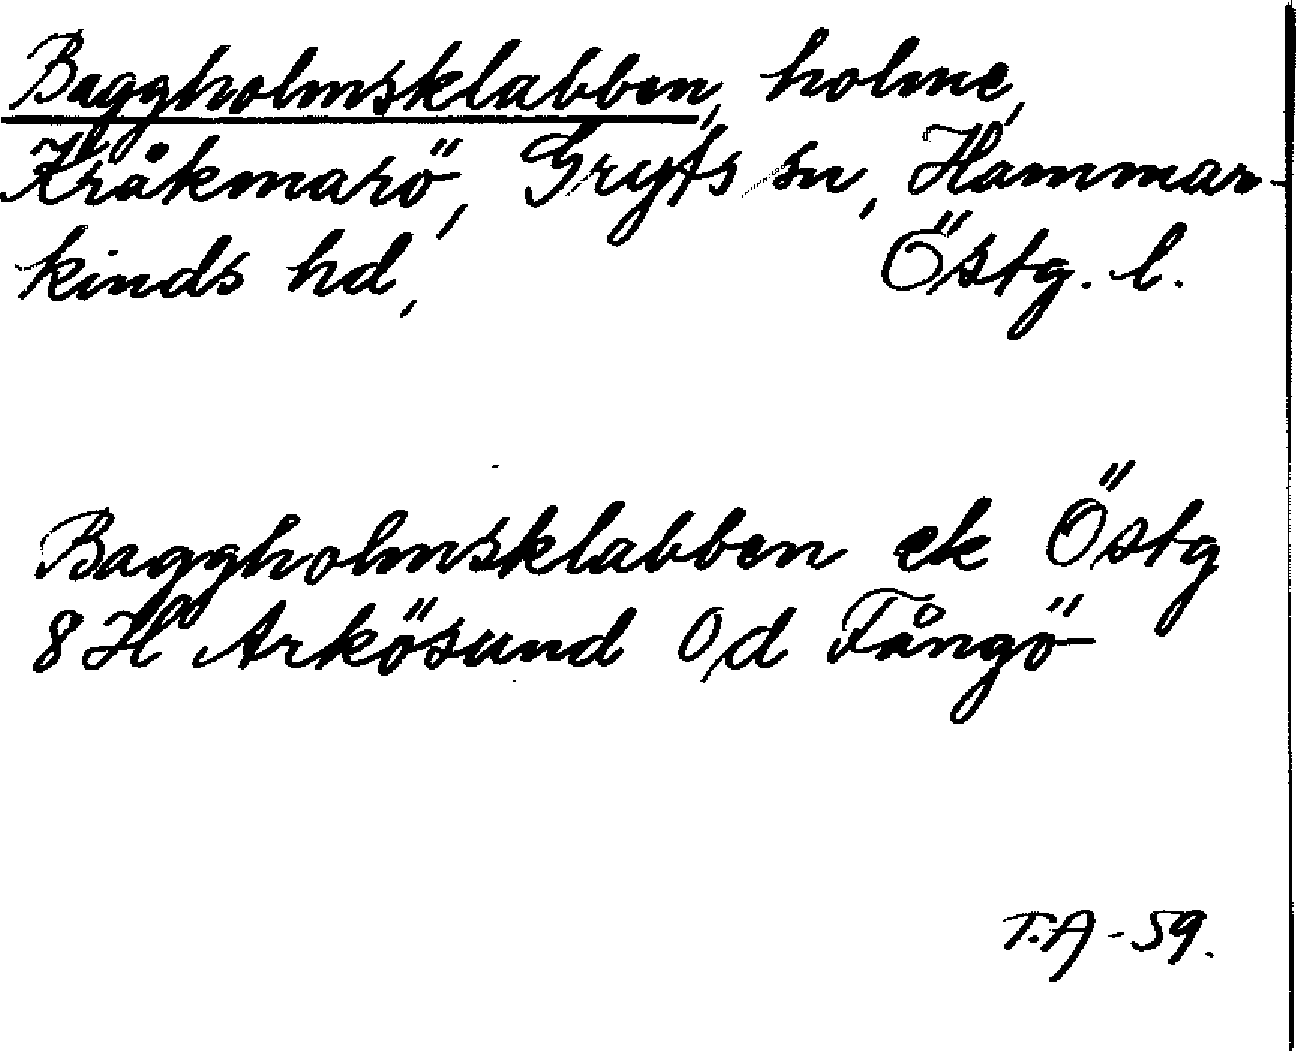 Baggholmsklabben, holme,
Kråkmarö, Gryts sn, Hammar-
kinds hd, Östg. l.
Baggholmsklabben ek Östg
8H Arkösund O/d Fångö
T.A - 59.